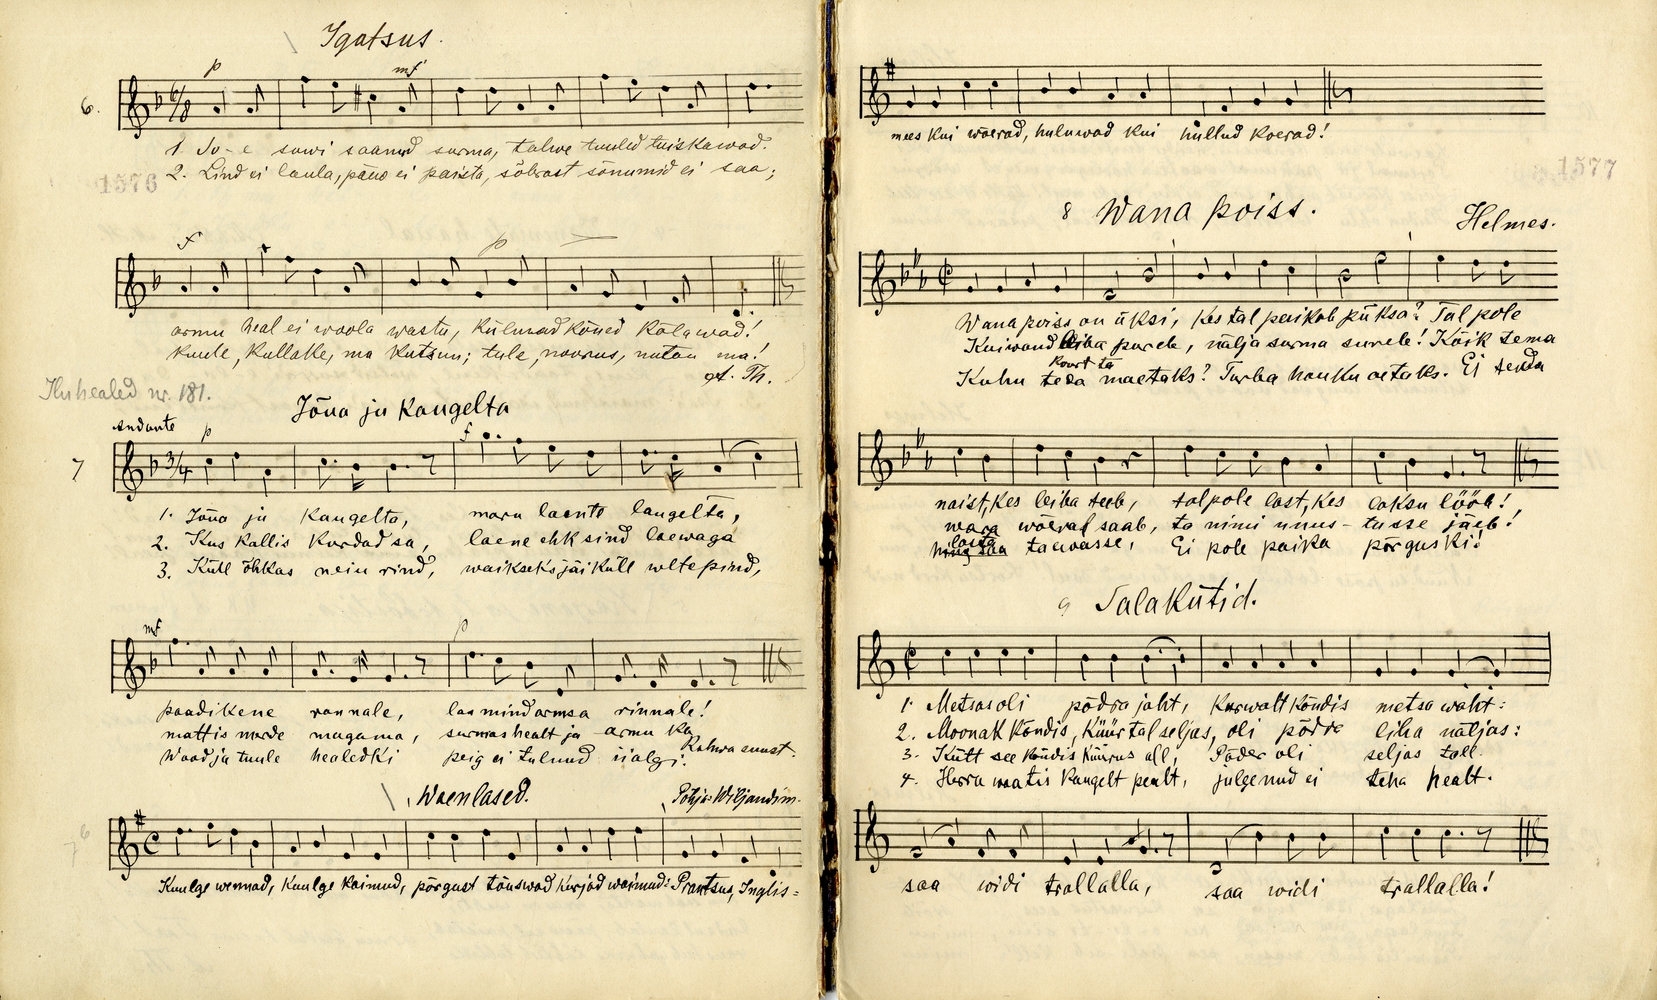 Igatsus.
p
mf
6.
6/8
1. Ju-e suwi saanud surma, talwe tuuled tuiskawad.
1576
2. Lind ei laula, päew ei paista, sõbrast sõnumid ei saa;
f
p
armu heal ei woola wastu, külmad kõned kõlawad!
kuule, kullake, ma kutsun; tule, noorus, nutan ma!
A. Th.
Kuhealed nr. 181.
Jõua ju kaugelta
Andante
p
f
7
3/4
1. Jõua ju kaugelta, maru laente laugelta,
2. Kus kallis kurdad sa, laene ehk sind laewaga
3. Küll õhkas neiu rind, waikseks jäi küll wetepind,
mf
p
paadikene rannale, las mind armsa rinnale!
mattis merde magama, surmas healt ja armu ka
Wood ja tuule healedki peig ei tulnud iialgi.
Rahwa suust.
Waenlased.
Põhja-Wiljandim.
7
6
Kuulge wennad, kuulge kaimud, põrgust tõuswad kurjad waimud: Prantsus, Inglis=
mees kui woerad, huluwad kui hullud koerad!
1577
8 Wana poiss.
Helmes.
Wana poiss on üksi, kes tal paikab püksa? Tal pole
Kuiwand leiba pureb, nälja surma sureb! Kõik tema
Kuhu teda maetaks? Turba hauku aetaks. Ei teda
kourt ta
naist, kes leiba teeb, tal pole last, kes laksu lööb!
wara woeras saab, ta nimi unus-tusse jääb!
lasta
ning saa taewasse, Ei pole paika põrguski!
9 Salakütid.
1. Metsas oli põdra jaht, Kurwalt kõndis metsa waht:
2. Moonak kõndis, küür tal seljas, oli põdra liha näljas:
3. Kütt see kõndis küürus all, Põder oli seljas tall.
4. Herra waatis kaugelt pealt, julgenud ei teha healt.
saa widi trallalla, saa widi trallalla!